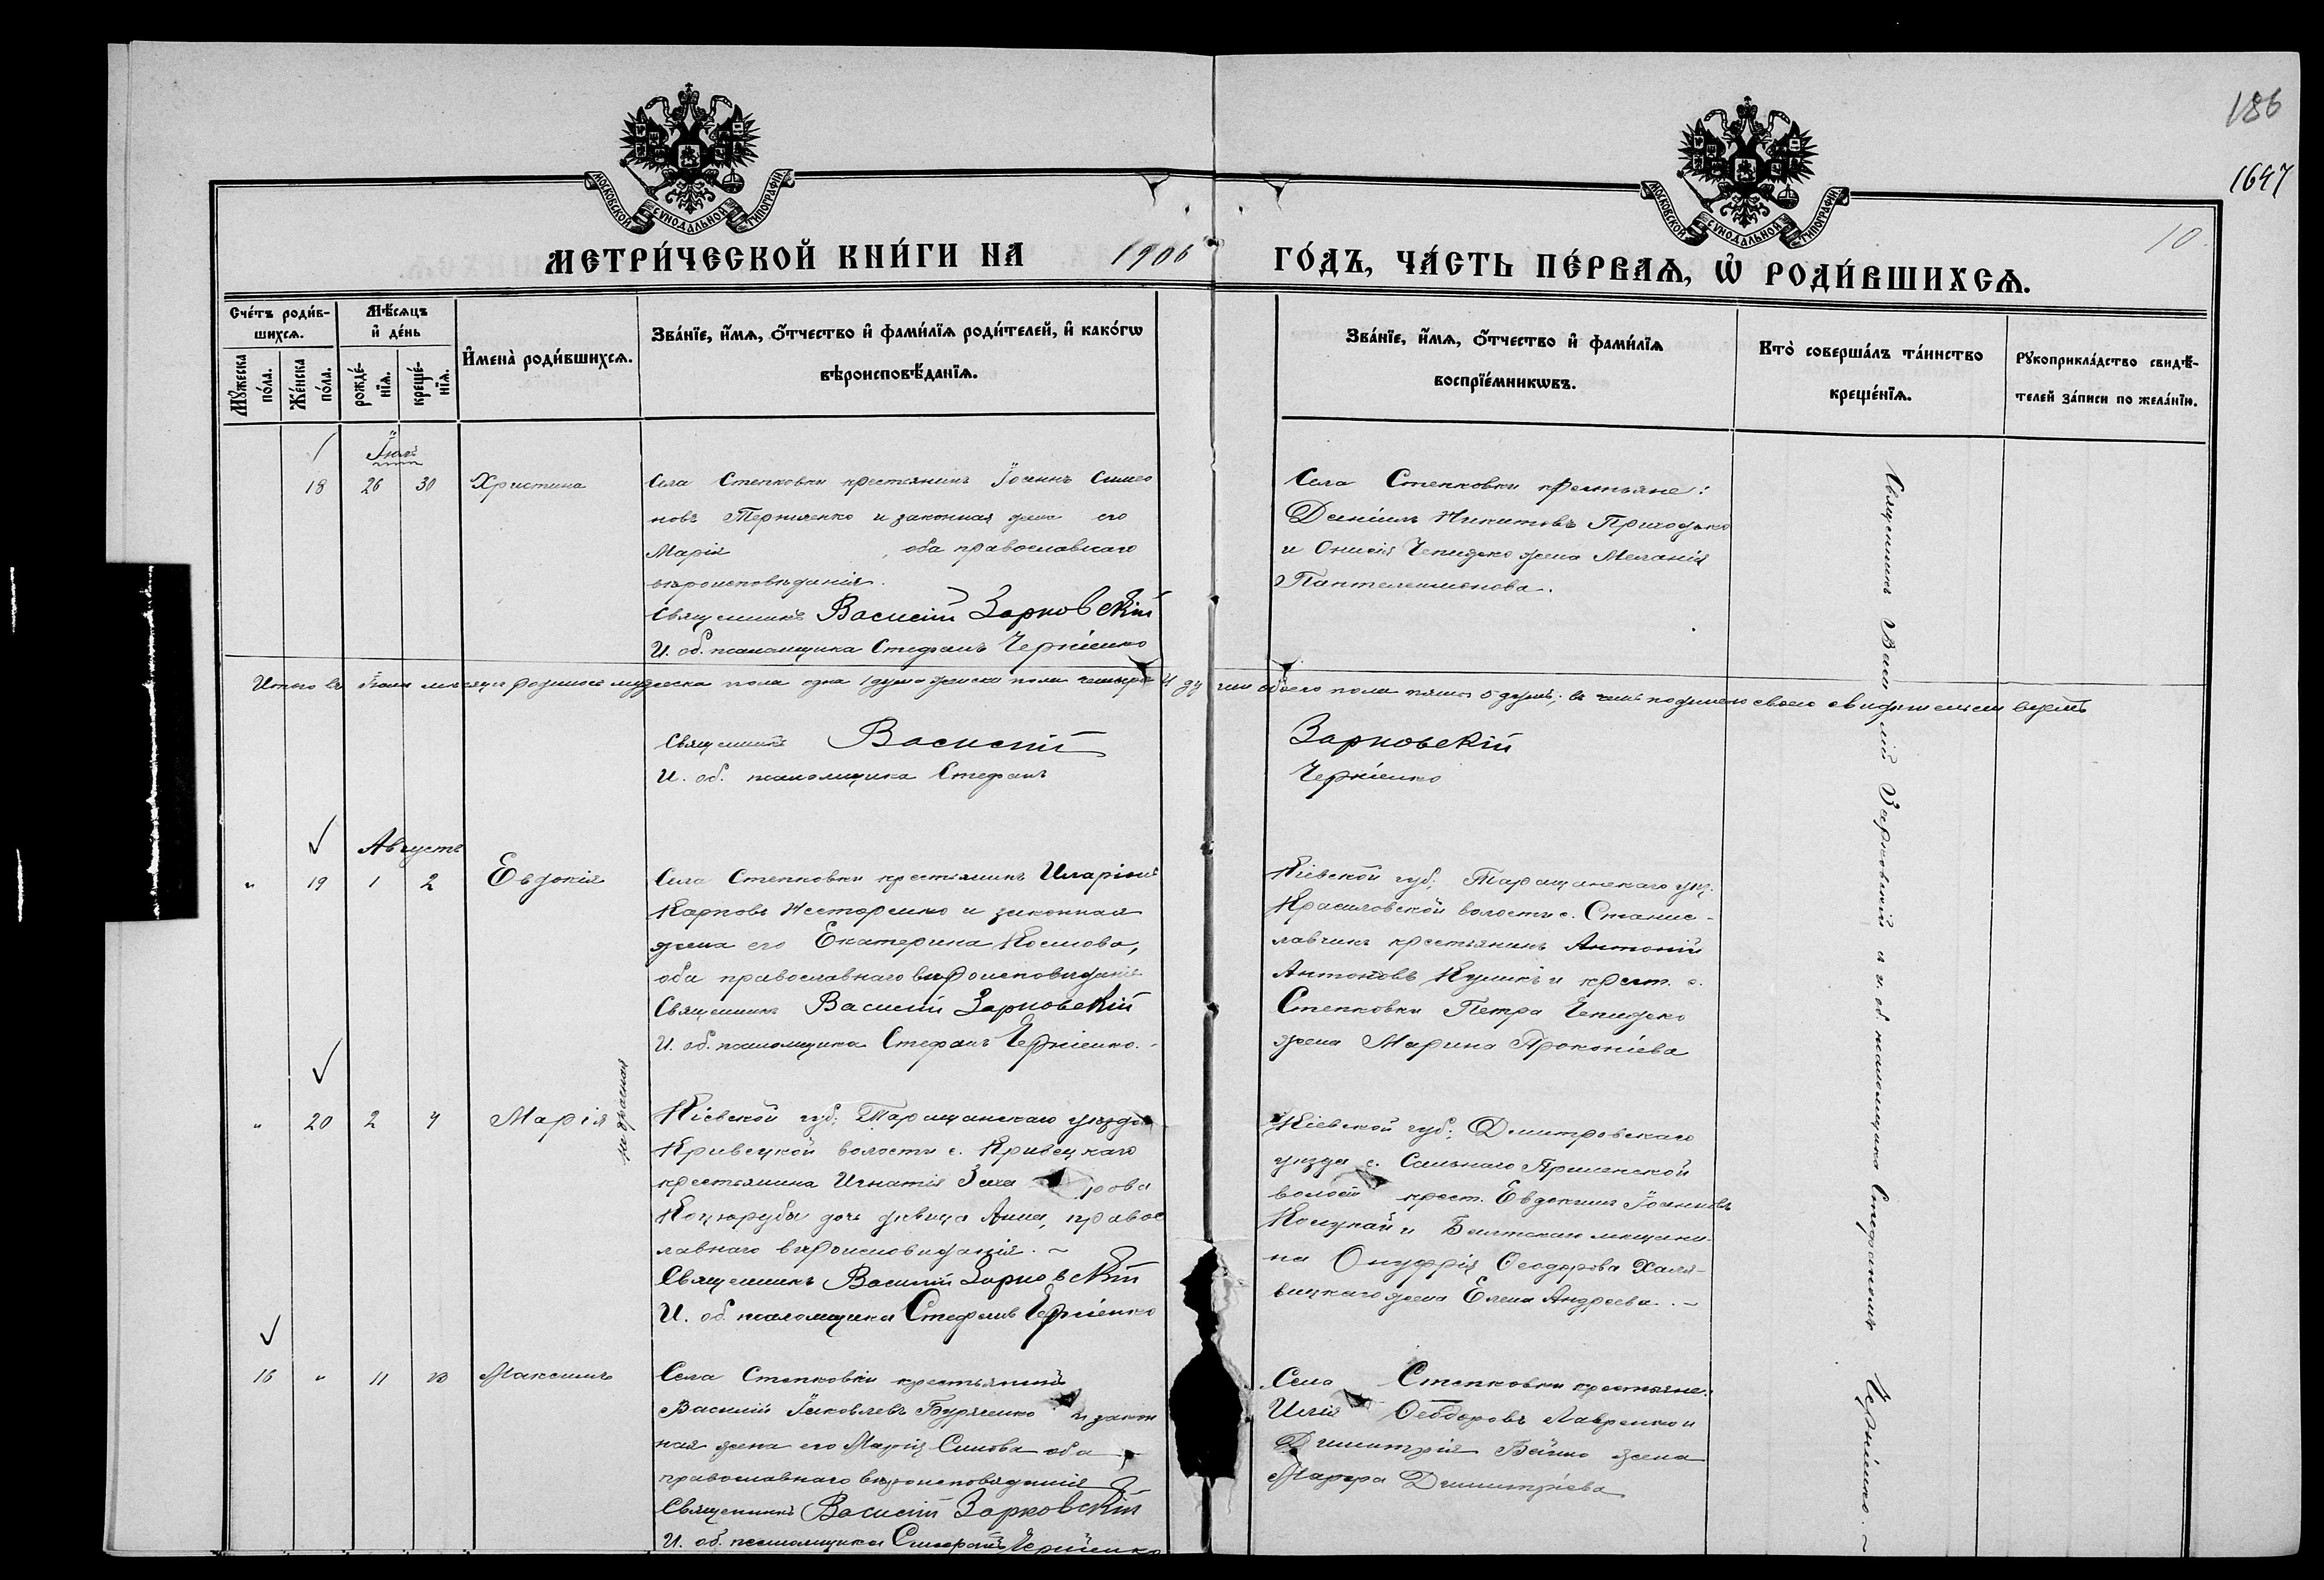 186
1647
10
МОСКОВСКОЙ СУНОДАЛЬНОЙ ТИПОГРАФІИ
МОСКОВСКОЙ СУНОДАЛЬНОЙ ТИПОГРАФІИ
МЕТРИ́ЧЕСКОЙ КНИ́ГИ НА 1906 ГО́ДЪ, ЧА́СТЬ ПЕ́РВАѦ, Ѡ҆ РОДИ́ВШИХСѦ.
Сче́тъ роди́в-
шихсѧ.
Мѣ́сѧцъ
и҆ де́нь
Мꙋ́жеска
по́ла.
Же́нска
по́ла.
рожде́-
нїѧ.
креще́-
нїѧ.
И҆мена̀ роди́вшихсѧ.
Зва́нїе, и҆́мѧ, ѻ҆́тчество и҆ фами́лїѧ роди́телей, и҆ како́гѡ
вѣроисповѣ́данїѧ.
Зва́нїе, и҆́мѧ, ѻ҆́тчество и҆ фами́лїѧ
воспрїе́мникѡвъ.
Кто̀ соверша́лъ та́инство
креще́нїѧ.
Рꙋкоприкла́дство свидѣ́-
телей за́писи по жела́нїю.
Іюль
18 26 30 Христина
Села Степковки крестьянинъ Іоаннъ Симео
новъ и законная жена его
Марія , оба православнаго
вѣроисповѣданія.
Священникъ Василій Зарковскій
И. об. псаломщика Стефанъ Черніенко
Села Степковки крестьяне:
Даніилъ Никитовъ Приходько
и Онисія Чепижко жена Меланія
Пантелеимонова.
Итого въ Іюлѣ мѣсяцѣ родилось мужеска пола одна 1 душа женска пола четыре 4 души обоего пола пять 5 душъ; въ чемъ подписью своею свидѣтельствуемъ
Священникъ Василій Зарковскій
И. об. псаломщика Стефанъ Черніенко
Августъ
" 19 1 2 Евдокія
Села Степковки крестьянинъ Иларіонъ
Карповъ Нестеренко и законная
жена его Екатерина Космова,
оба православнаго вѣроисповѣданія
Священникъ Василій Зарковскій
И. об. псаломщика Стефанъ Черніенко.
Кіевской губ; Таращанскаго уѣз.
Красиловской волости с. Станис-
лавчикъ крестьянинъ Антоній
Антоновъ Куликъ и крест. с.
Степковки Петра Чепижко
жена Марина Прокопіева
" 20 2 4 Марія
Кіевской губ; Таращанскаго уѣзда
Кривецкой волости с. Кривецкаго
крестьянина Игнатія Заха рова
Коцюрубы дочь дѣвица Анна, правос
лавнаго вѣроисповѣданія. ~
Священникъ Василій Зарковскій
И. об. псаломщика Стефанъ Черніенко
Кіевской губ; Димитровскаго
уѣзда с.
волости крест. Евдокимъ Іоанновъ
и Балтскаго мѣщани-
на Онуфрія Ѳеодорова Халя-
вицкаго жена Елена Андреева. ~
16 " 11 13 Максимъ
Села Степковки крестьянинъ
Василій Іаковлевъ Буряченко и закон
ная жена его Марія Симова оба
православнаго вѣроисповѣданія
Священникъ Василій Зарковскій
И. об. псаломщика Стефанъ Черніенко
Села Степковки крестьяне:
Илія Ѳеодоровъ Лавренко и
Димитрія Бойко жена
Марфа Димитріева
Священникъ Василій Зарковскій и и. об. псаломщика Стефаномъ Черніенко. ~